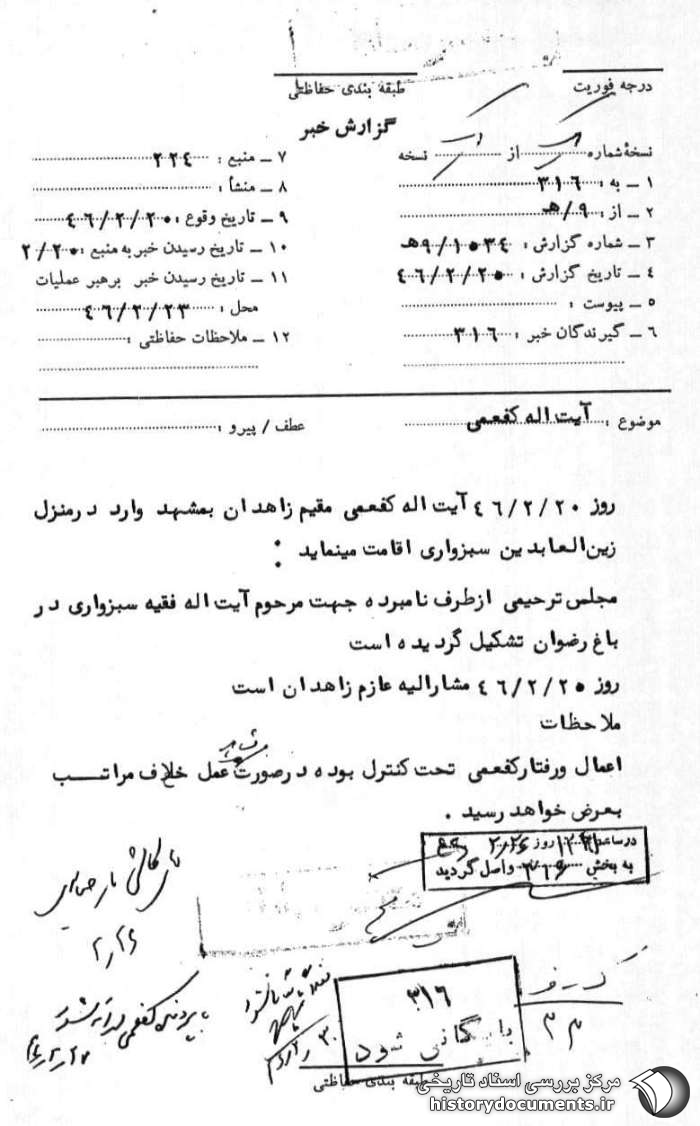 درجه فوریت
طبقه بندی حفاظتی
گزارش خبر
نسخهٔ شماره از نسخه
۱ ــ به : ۳۱۶
۲ ــ از : ۹/هـ
۳ ــ شماره گزارش : ۹/۱۰۵۳٤هـ
٤ ــ تاریخ گزارش : ٤٦/۲/۲۰
۵ ــ پیوست :
٦ ــ گیرندگان خبر : ۳۱۶
۷ ــ منبع : ۲۲٤
۸ ــ منشأ :
۹ ــ تاریخ وقوع : ٤٦/۲/۲۰
۱۰ ــ تاریخ رسیدن خبر به منبع : ۲/۲۰
۱۱ ــ تاریخ رسیدن خبر برهبر عملیات
محل : ٤٦/۲/۲۳
۱۲ ــ ملاحظات حفاظتی :
موضوع : آیت اله کفعمی
عطف / پیرو :
روز ٤٦/۲/۲۰ آیت اله کفعمی مقیم زاهدان بمشهد وارد درمنزل
زین‌العابدین سبزواری اقامت مینماید :
مجلس ترحیمی ازطرف نامبرده جهت مرحوم آیت اله فقیه سبزواری در
باغ رضوان تشکیل گردیده است
روز ٤٦/۲/۲۵ مشارالیه عازم زاهدان است
ملاحظات
اعمال ورفتارکفعمی تحت کنترل بوده درصورت عمل خلاف مراتــب
بعرض خواهد رسید .
درساعت روز ۲/۲۶
به بخش ۳۱۶ واصل گردید
۲/۲۶
۳۱۶
بایگانی شود
بپرونده کفعمی
طبقه بندی حفاظتی
مرکز بررسی اسناد تاریخی
historydocuments.ir